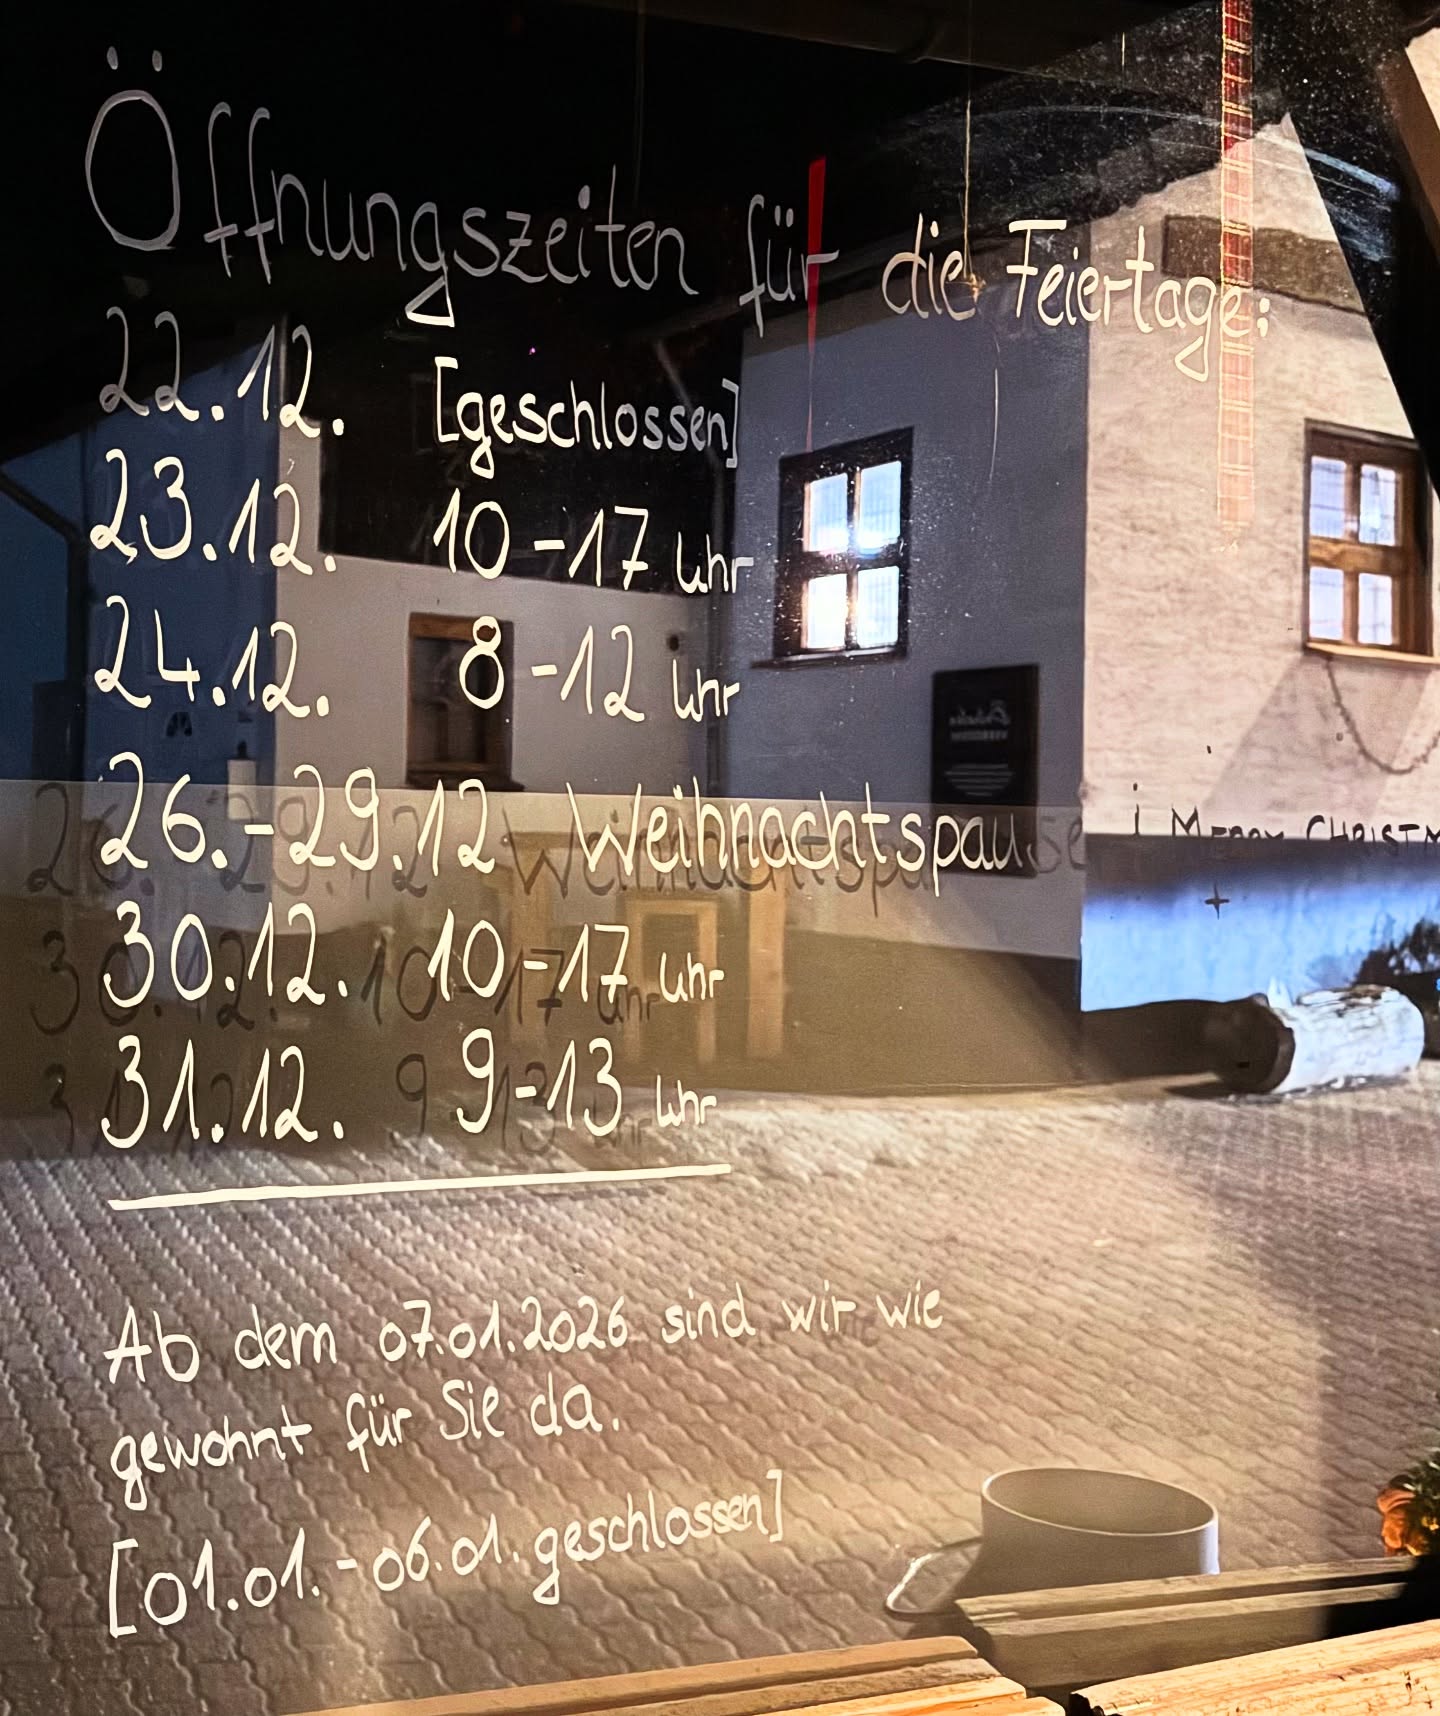 Öffnungszeiten für die Feiertage:
22.12. [geschlossen]
23.12. 10-17 Uhr
24.12. 8-12 Uhr
26.-29.12 Weihnachtspause
30.12. 10-17 Uhr
31.12. 9-13 Uhr
Ab dem 07.01.2026 sind wir wie
gewohnt für Sie da.
[01.01.-06.01. geschlossen]
MERRY CHRISTM